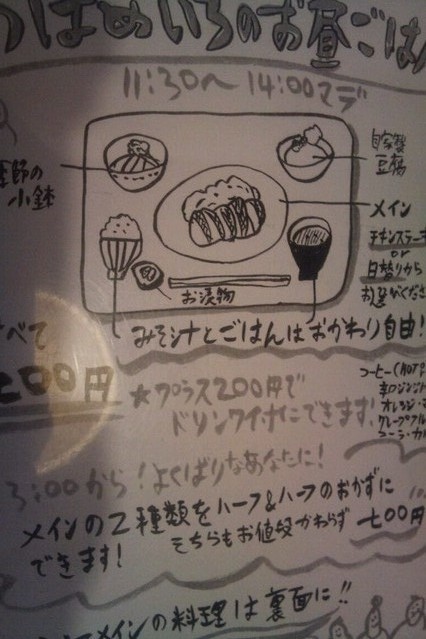 つばめいろのお昼ごはん
11:30〜14:00マデ
季節の
小鉢
自家製
豆腐
メイン
チキンステーキ
or
日替りから
お選びくださ
お漬物
みそシナとごはんはおかわり自由!
すべて
七00円
★プラス200円で
ドリンク付にできます!
コーヒー(HOT
辛口ジンジ
オレンジ・
グレープフル
コーラ・カル
3:00から!よくばりなあなたに!
メインの2種類をハーフ&ハーフのおかずに
できます!
そちらもお値段かわらず 七00円
メインの料理は裏面に!!